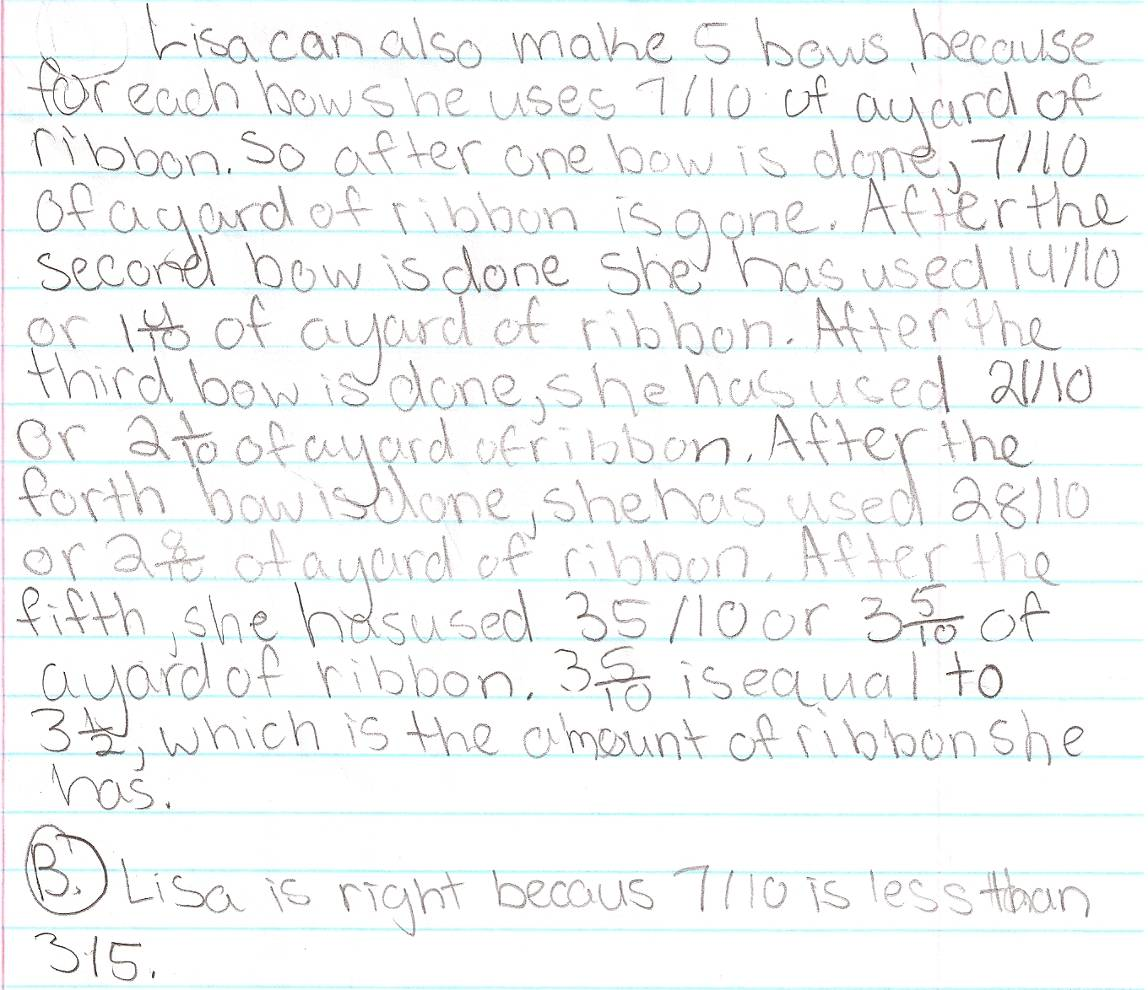 Lisa can also make 5 bows, because
for each bow she uses 7/10 of a yard of
ribbon. So after one bow is done, 7/10
of a yard of ribbon is gone. After the
second bow is done she has used 14/10
or 1 4/10 of a yard of ribbon. After the
third bow is done, she has used 21/10
or 2 1/10 of a yard of ribbon. After the
forth bow is done, she has used 28/10
or 2 8/10 of a yard of ribbon. After the
fifth, she has used 35/10 or 3 5/10 of
a yard of ribbon. 3 5/10 is equal to
3 1/2, which is the amount of ribbon she
has.
B. Lisa is right becaus 7/10 is less than
3/5.